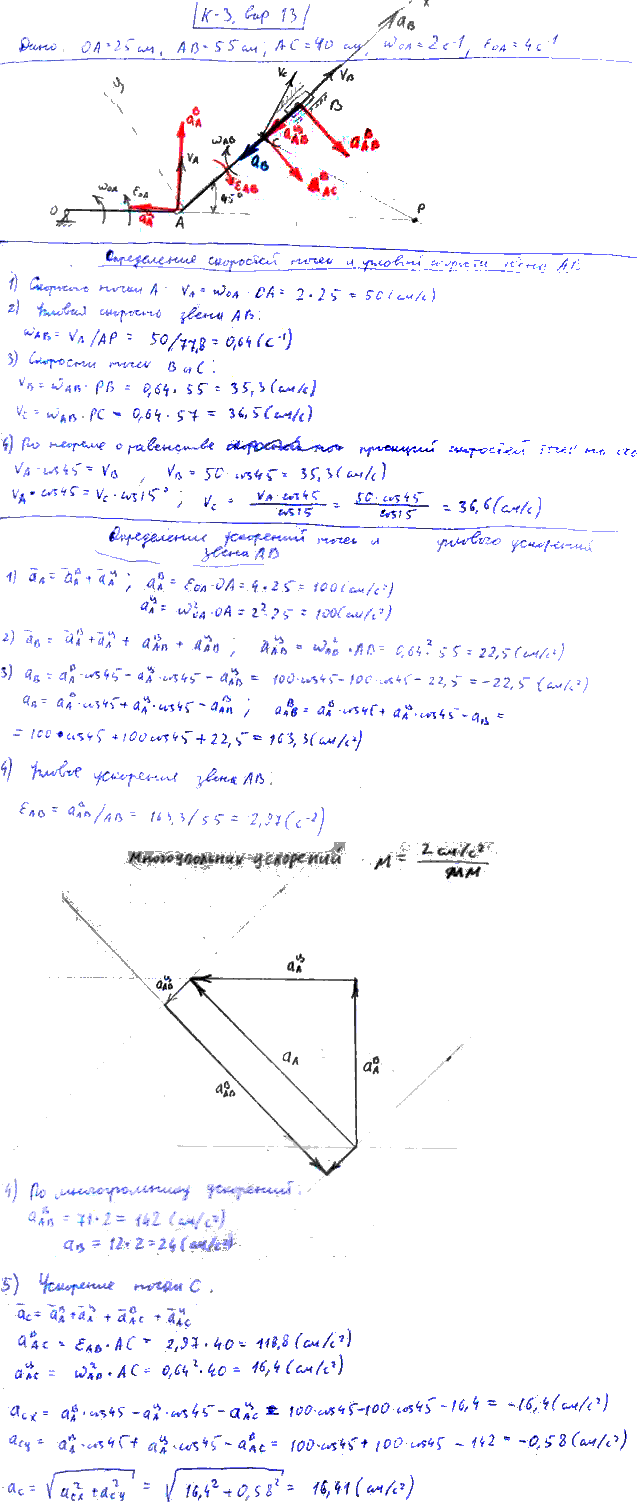 К-3, вар 13
Дано: OA=25 см, AB=55 см; AC=40 см, ω_OA=2с⁻¹, ε_OA=4с⁻¹
x
a_B
y
V_C
V_B
B
a_A^B
a_AB^ц
a_AB^B
ω_AB
V_A
C
a_B
ε_AB
a_AC^B
ω_OA
ε_OA
45°
O
a_A^ц
A
P
Определение скоростей точек и угловой скорости звена AB
1) Скорость точки A: V_A = ω_OA · OA = 2·25 = 50 (см/с)
2) Угловая скорость звена AB:
ω_AB = V_A/AP = 50/77,8 = 0,64 (с⁻¹)
3) Скорости точек B и C:
V_B = ω_AB · PB = 0,64 · 55 = 35,3 (см/с)
V_C = ω_AB · PC = 0,64 · 57 = 36,5 (см/с)
4) По теореме о равенстве проекций скоростей точек на
V_A · cos45 = V_B , V_B = 50 · cos45 = 35,3 (см/с)
V_A · cos45 = V_C · cos15° ; V_C = V_A · cos45 / cos15 = 50 · cos45 / cos15 = 36,6 (см/с)
Определение ускорений точек и углового ускорения
звена AB
1) ā_A = ā_A^B + ā_A^ц ; a_A^B = ε_OA · OA = 4·25 = 100 (см/с²)
a_A^ц = ω²_OA · OA = 2² · 25 = 100 (см/с²)
2) ā_B = ā_A^B + ā_A^ц + ā_AB^B + ā_AB^ц ; a_AB^ц = ω_AB² · AB = 0,64² · 55 = 22,5 (см/с²)
3) a_B = a_A^B · cos45 − a_A^ц · cos45 − a_AB^ц = 100·cos45 − 100·cos45 − 22,5 = −22,5 (см/с²)
a_B = a_A^B · cos45 + a_A^ц · cos45 − a_AB^B ; a_AB^B = a_A^B · cos45 + a_A^ц · cos45 − a_B =
= 100·cos45 + 100cos45 + 22,5 = 163,3 (см/с²)
4) Угловое ускорение звена AB:
ε_AB = a_AB^B/AB = 163,3/55 = 2,97 (с⁻²)
Многоугольник ускорений М = 2 см/с² / мм
a_A^ц
a_AB^ц
a_A
a_A^B
a_AB^B
4) По многоугольнику ускорений:
a_AB^B = 71·2 = 142 (см/с²)
a_B = 12·2 = 24 (см/с²)
5) Ускорение точки C.
ā_C = ā_A^B + ā_A^ц + ā_AC^B + ā_AC^ц
a_AC^B = ε_AB · AC = 2,97 · 40 = 118,8 (см/с²)
a_AC^ц = ω_AB² · AC = 0,64² · 40 = 16,4 (см/с²)
a_Cx = a_A^B · cos45 − a_A^ц · cos45 − a_AC^ц = 100·cos45 − 100·cos45 − 16,4 = −16,4 (см/с²)
a_Cy = a_A^B · cos45 + a_A^ц · cos45 − a_AC^B = 100·cos45 + 100·cos45 − 142 = −0,58 (см/с²)
a_C = √(a_Cx² + a_Cy²) = √(16,4² + 0,58²) = 16,41 (см/с²)